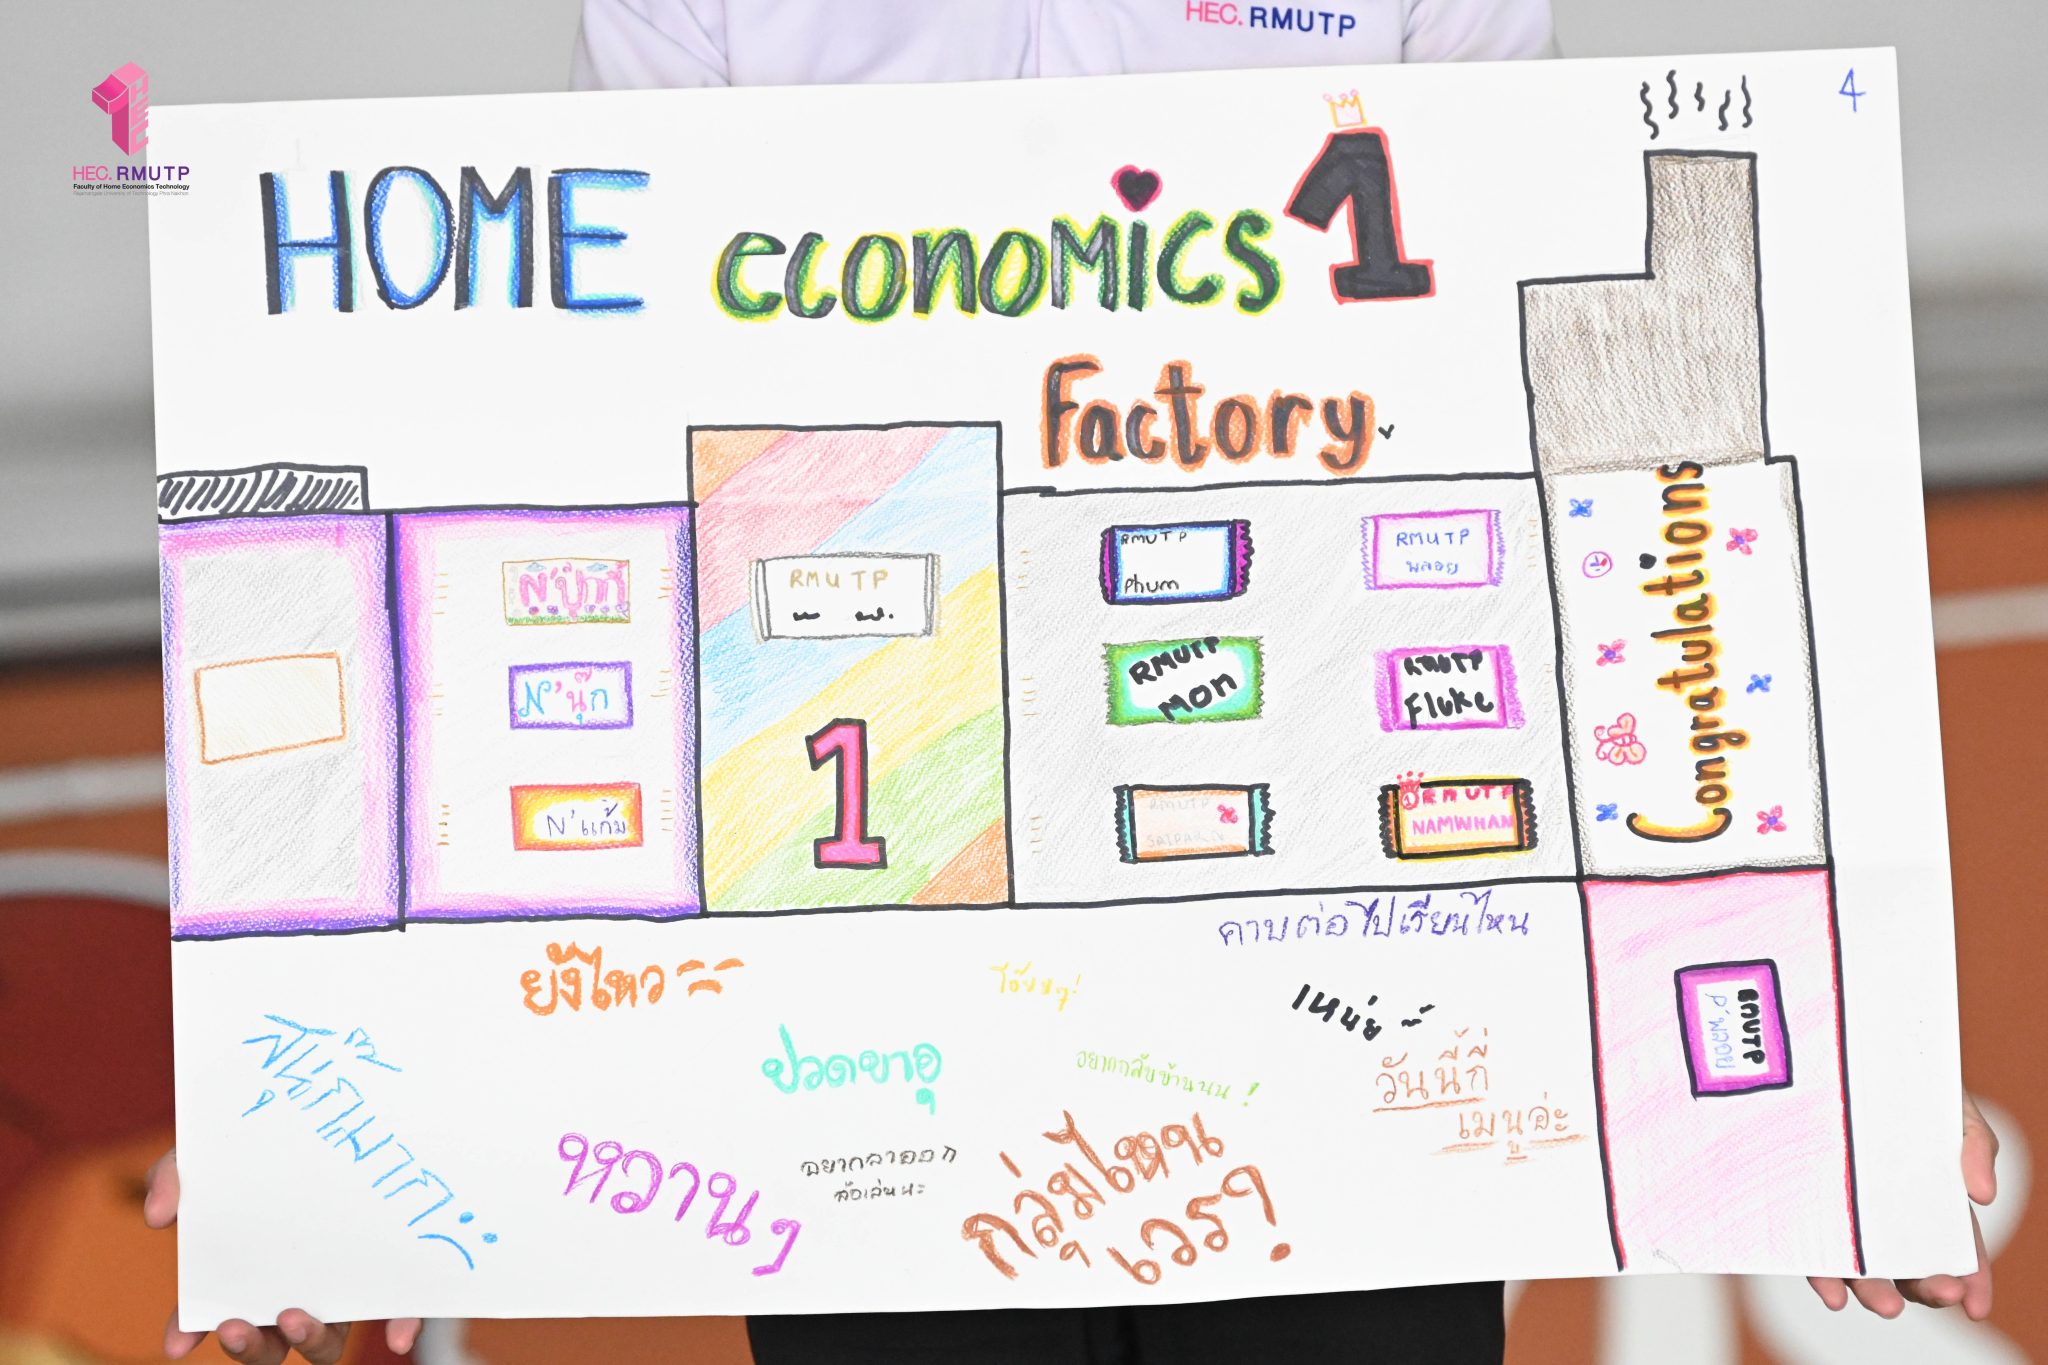 HEC. RMUTP
HEC. RMUTP
Faculty of Home Economics Technology
Rajamangala University of Technology Phra Nakhon
4
HOME economics 1
Factory
Congratulations
RMUTP
1
N'นุ๊ก
N'แก้ม
RMUTP
Phum
RMUTP
พลอย
RMUTP
MON
RMUTP
Fluke
RMUTP
RMUTP
NAMWHAN
RMUTP
P'พลอย
คาบต่อไปเรียนไหน
ยังไหว
เหนื่อย
ปวดขาอุ
อยากกลับบ้านนน!
วันนี้กี่
เมนูอ่ะ
สนุกมาก
หวานๆ
อยากลาออก
ล้อเล่นนะ
กลุ่มไหน
เวร?